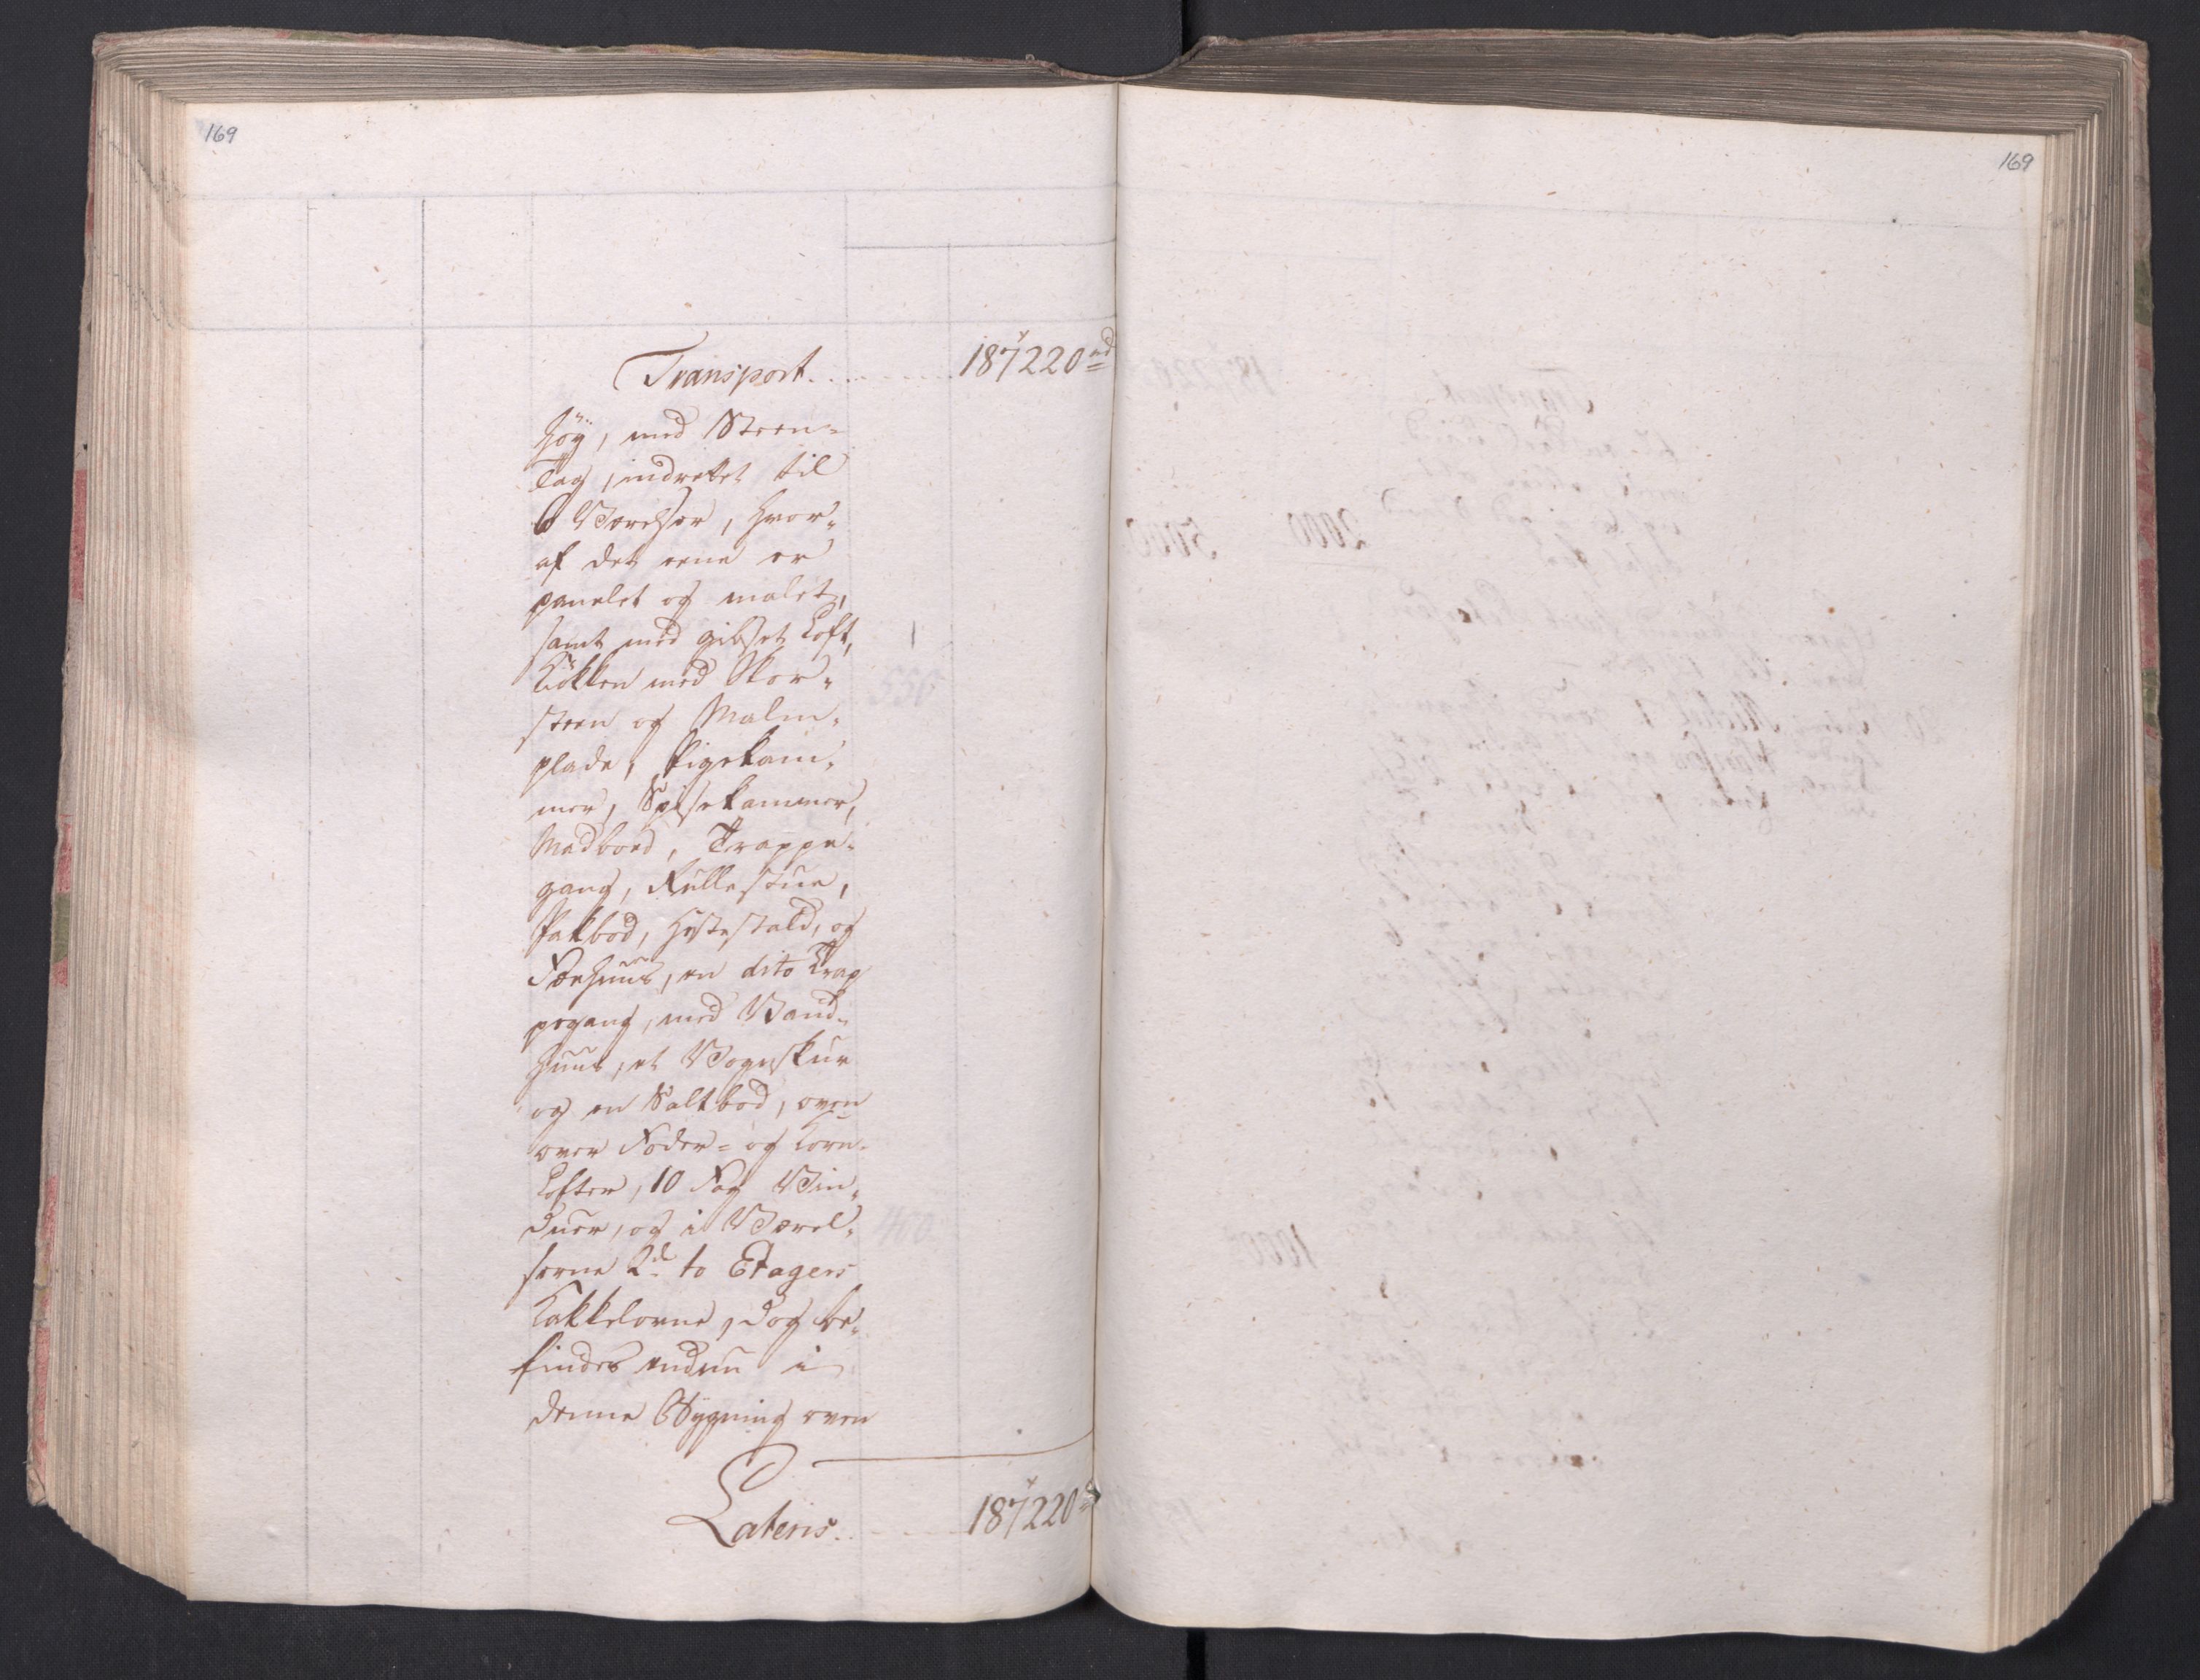 169
169
Transport. . . . . . . 187220 rd
höy, med Steen-
Tag, indrettet til
6 Værelser, hvor-
af det eene er
panelet og malet,
samt med gibset Loft,
Kökken med Skor-
steen og Malm-
plade, Pigekam-
mer, Spisekammer,
Madbod, Trappe-
gang, Rullestue,
Pakbod, Hestestald, og
Fæehuus, en dito Trap
pegang, med Vand-
huus, et Vognskur
og en Saltbod, oven
over Foder- og Korn-
Lofter, 10 Fag Vin-
duer, og i Værel-
serne 2de to Etagers
Kakkelovne, dog be-
findes endnu i
denne Bygning oven
Lateris. . . . . 187220